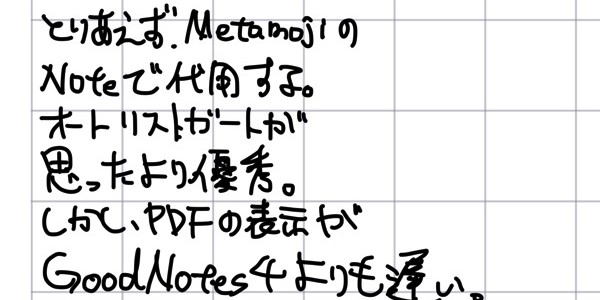 とりあえず、Metamojiの
Noteで代用する。
オートリストガートが
思ったより優秀。
しかし、PDFの表示が
GoodNotes4よりも遅い。